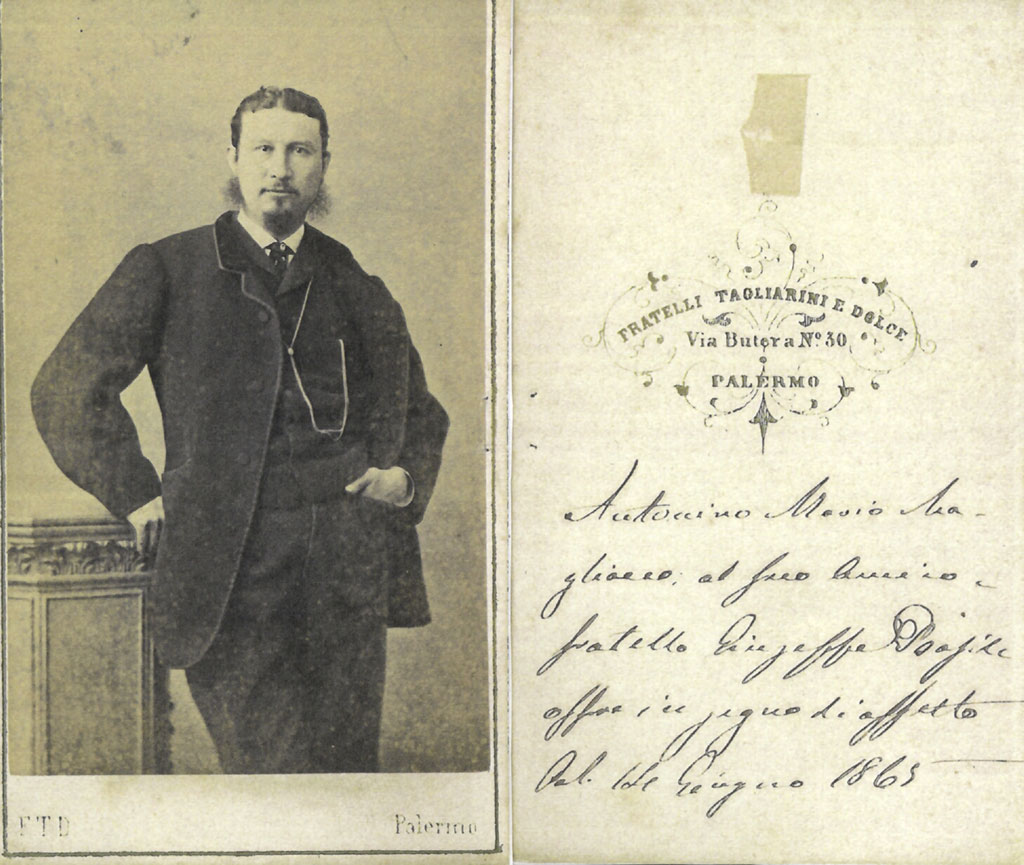 F T D
Palermo
FRATELLI TAGLIARINI E DOLCE
Via Butera Nº 30
PALERMO
Antonino Mario Ma-
gliacco, al suo amico-
fratello Giuseppe
offre in segno di affetto
Pal. Giugno 1865